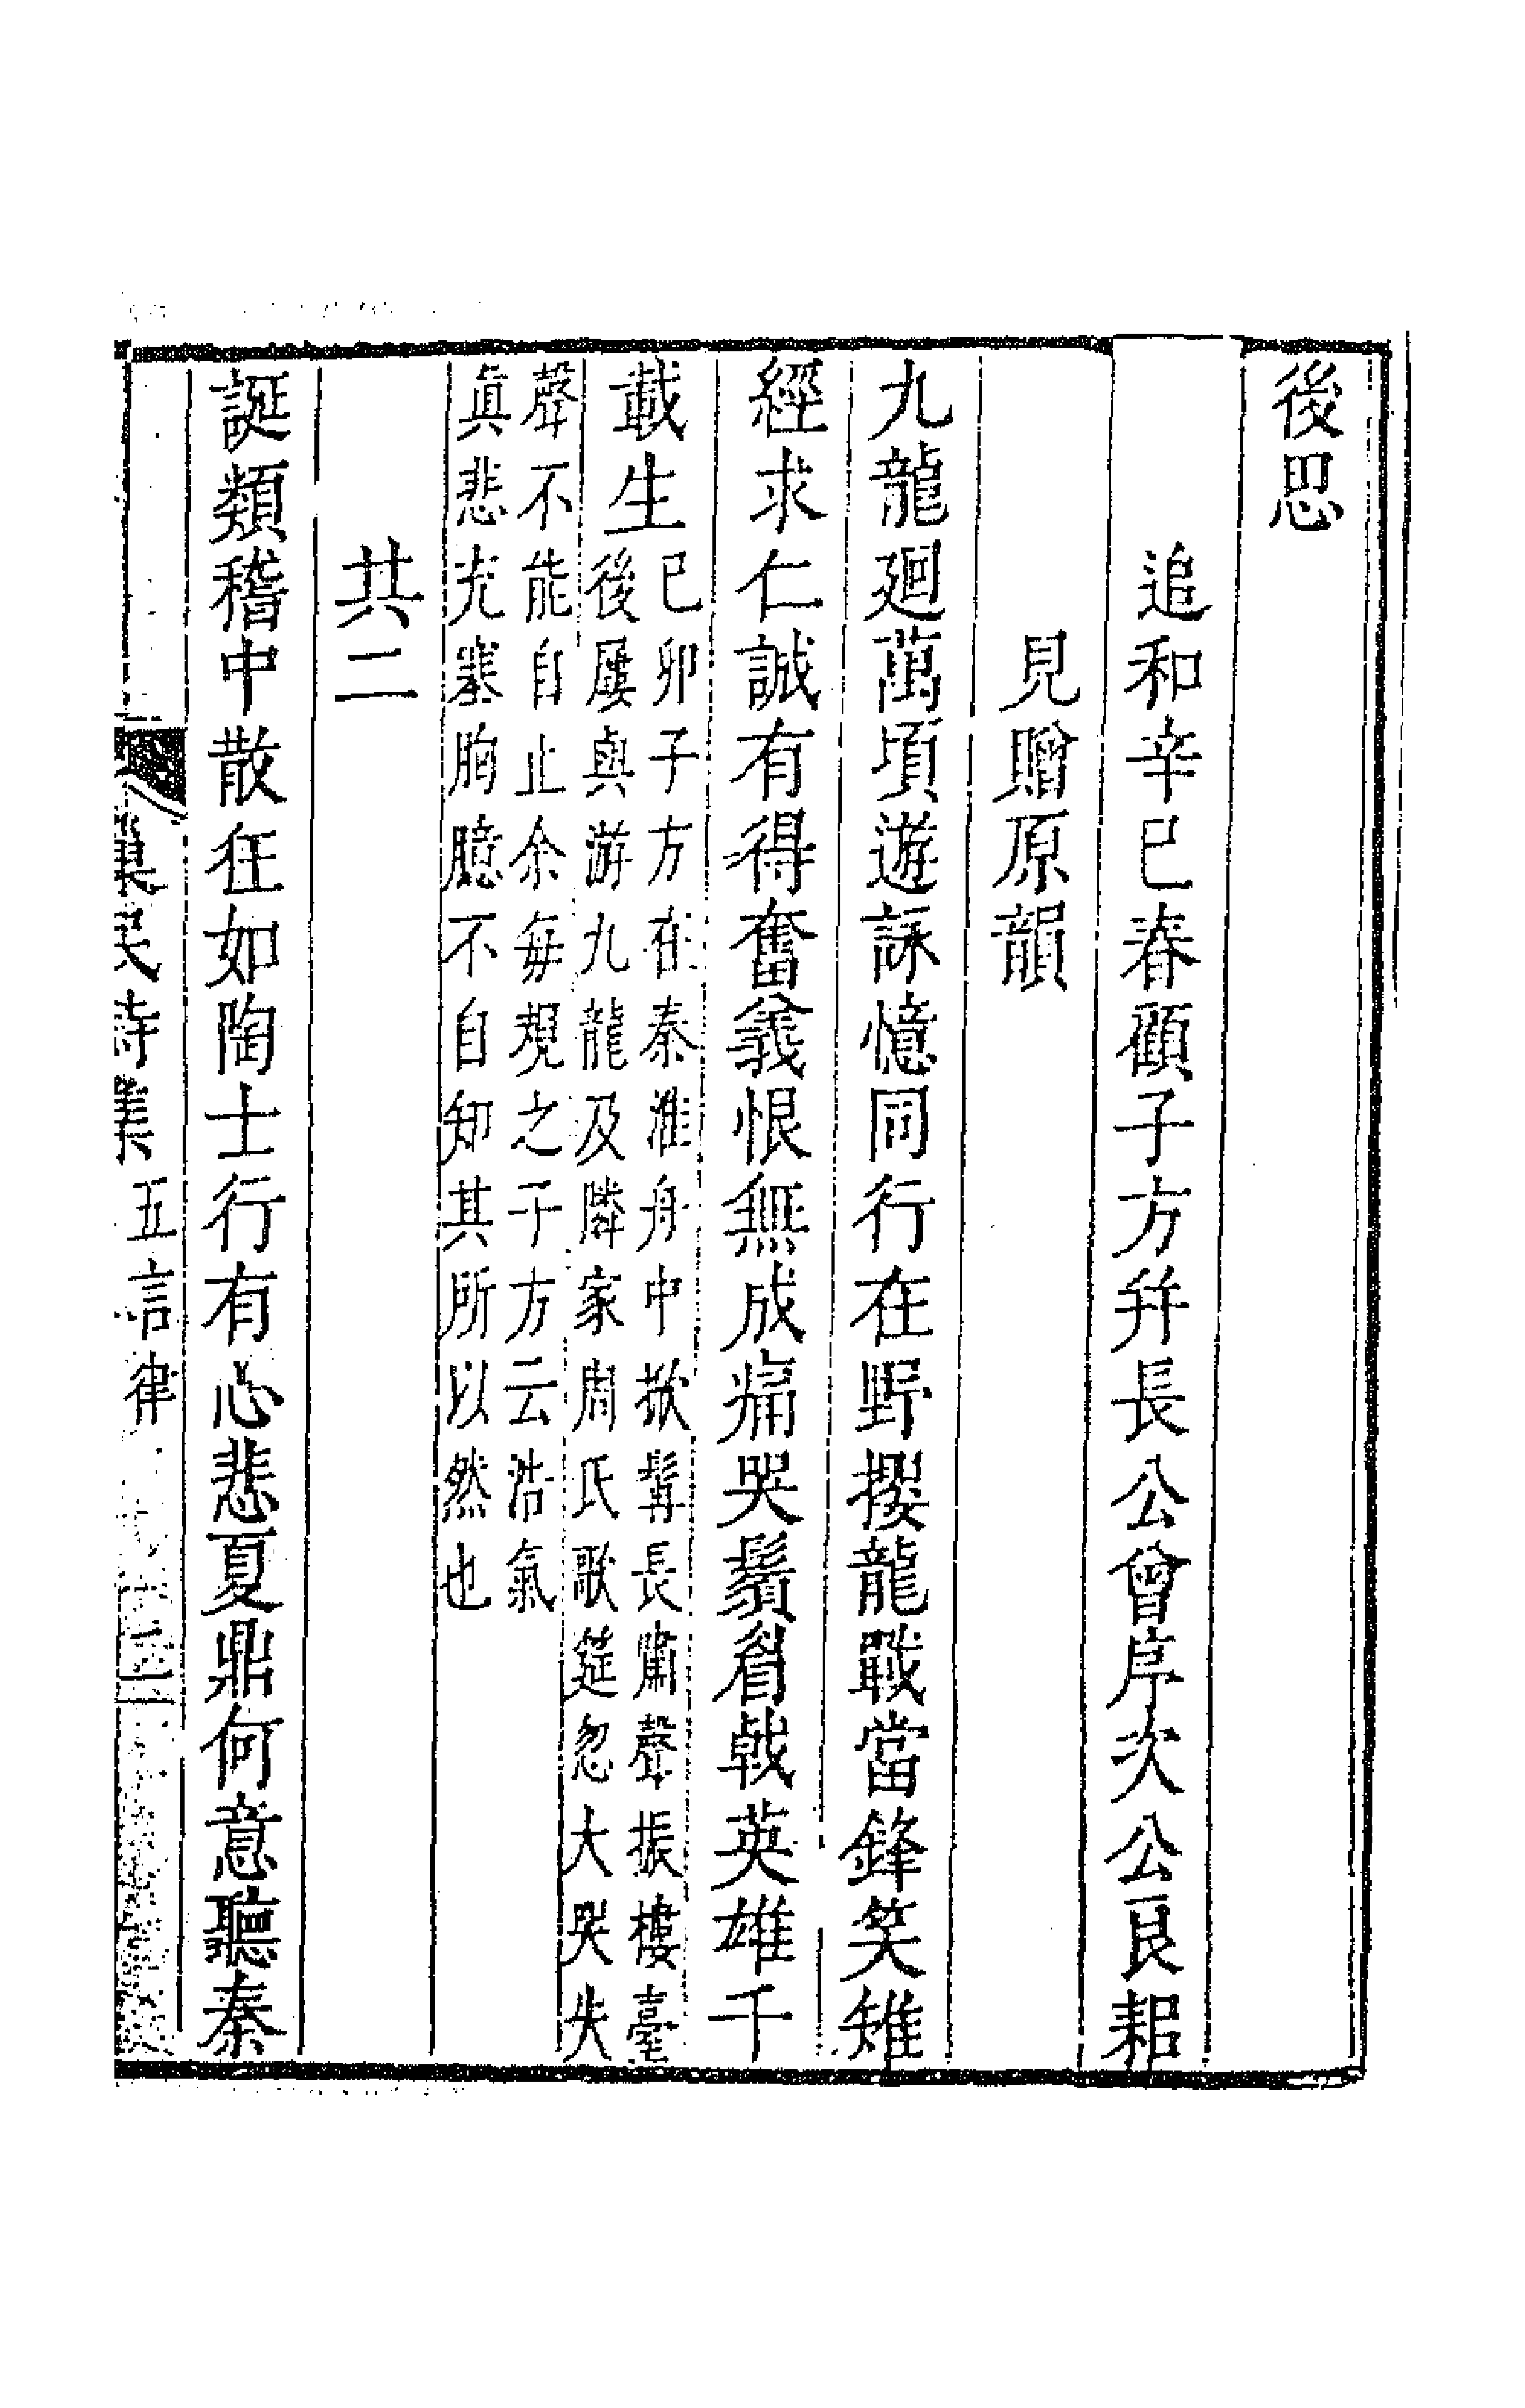 後思
追和辛巳春顧子方幷長公曾序次公艮耜
見贈原韻
九龍廻萬頃遊詠憶同行在野攖龍戰當鋒笑雉
經求仁誠有得奮義恨無成痛哭鬚眉戟英雄千
載生己卯子方在秦淮舟中掀髯長嘯聲振樓臺
後屢與游九龍及隣家周氏歌筵忽大哭失
聲不能自止余每規之子方云浩氣
眞悲充塞胸臆不自知其所以然也
其二
誕類稽中散狂如陶士行有心悲夏鼎何意聽秦
巢民詩集 五言律